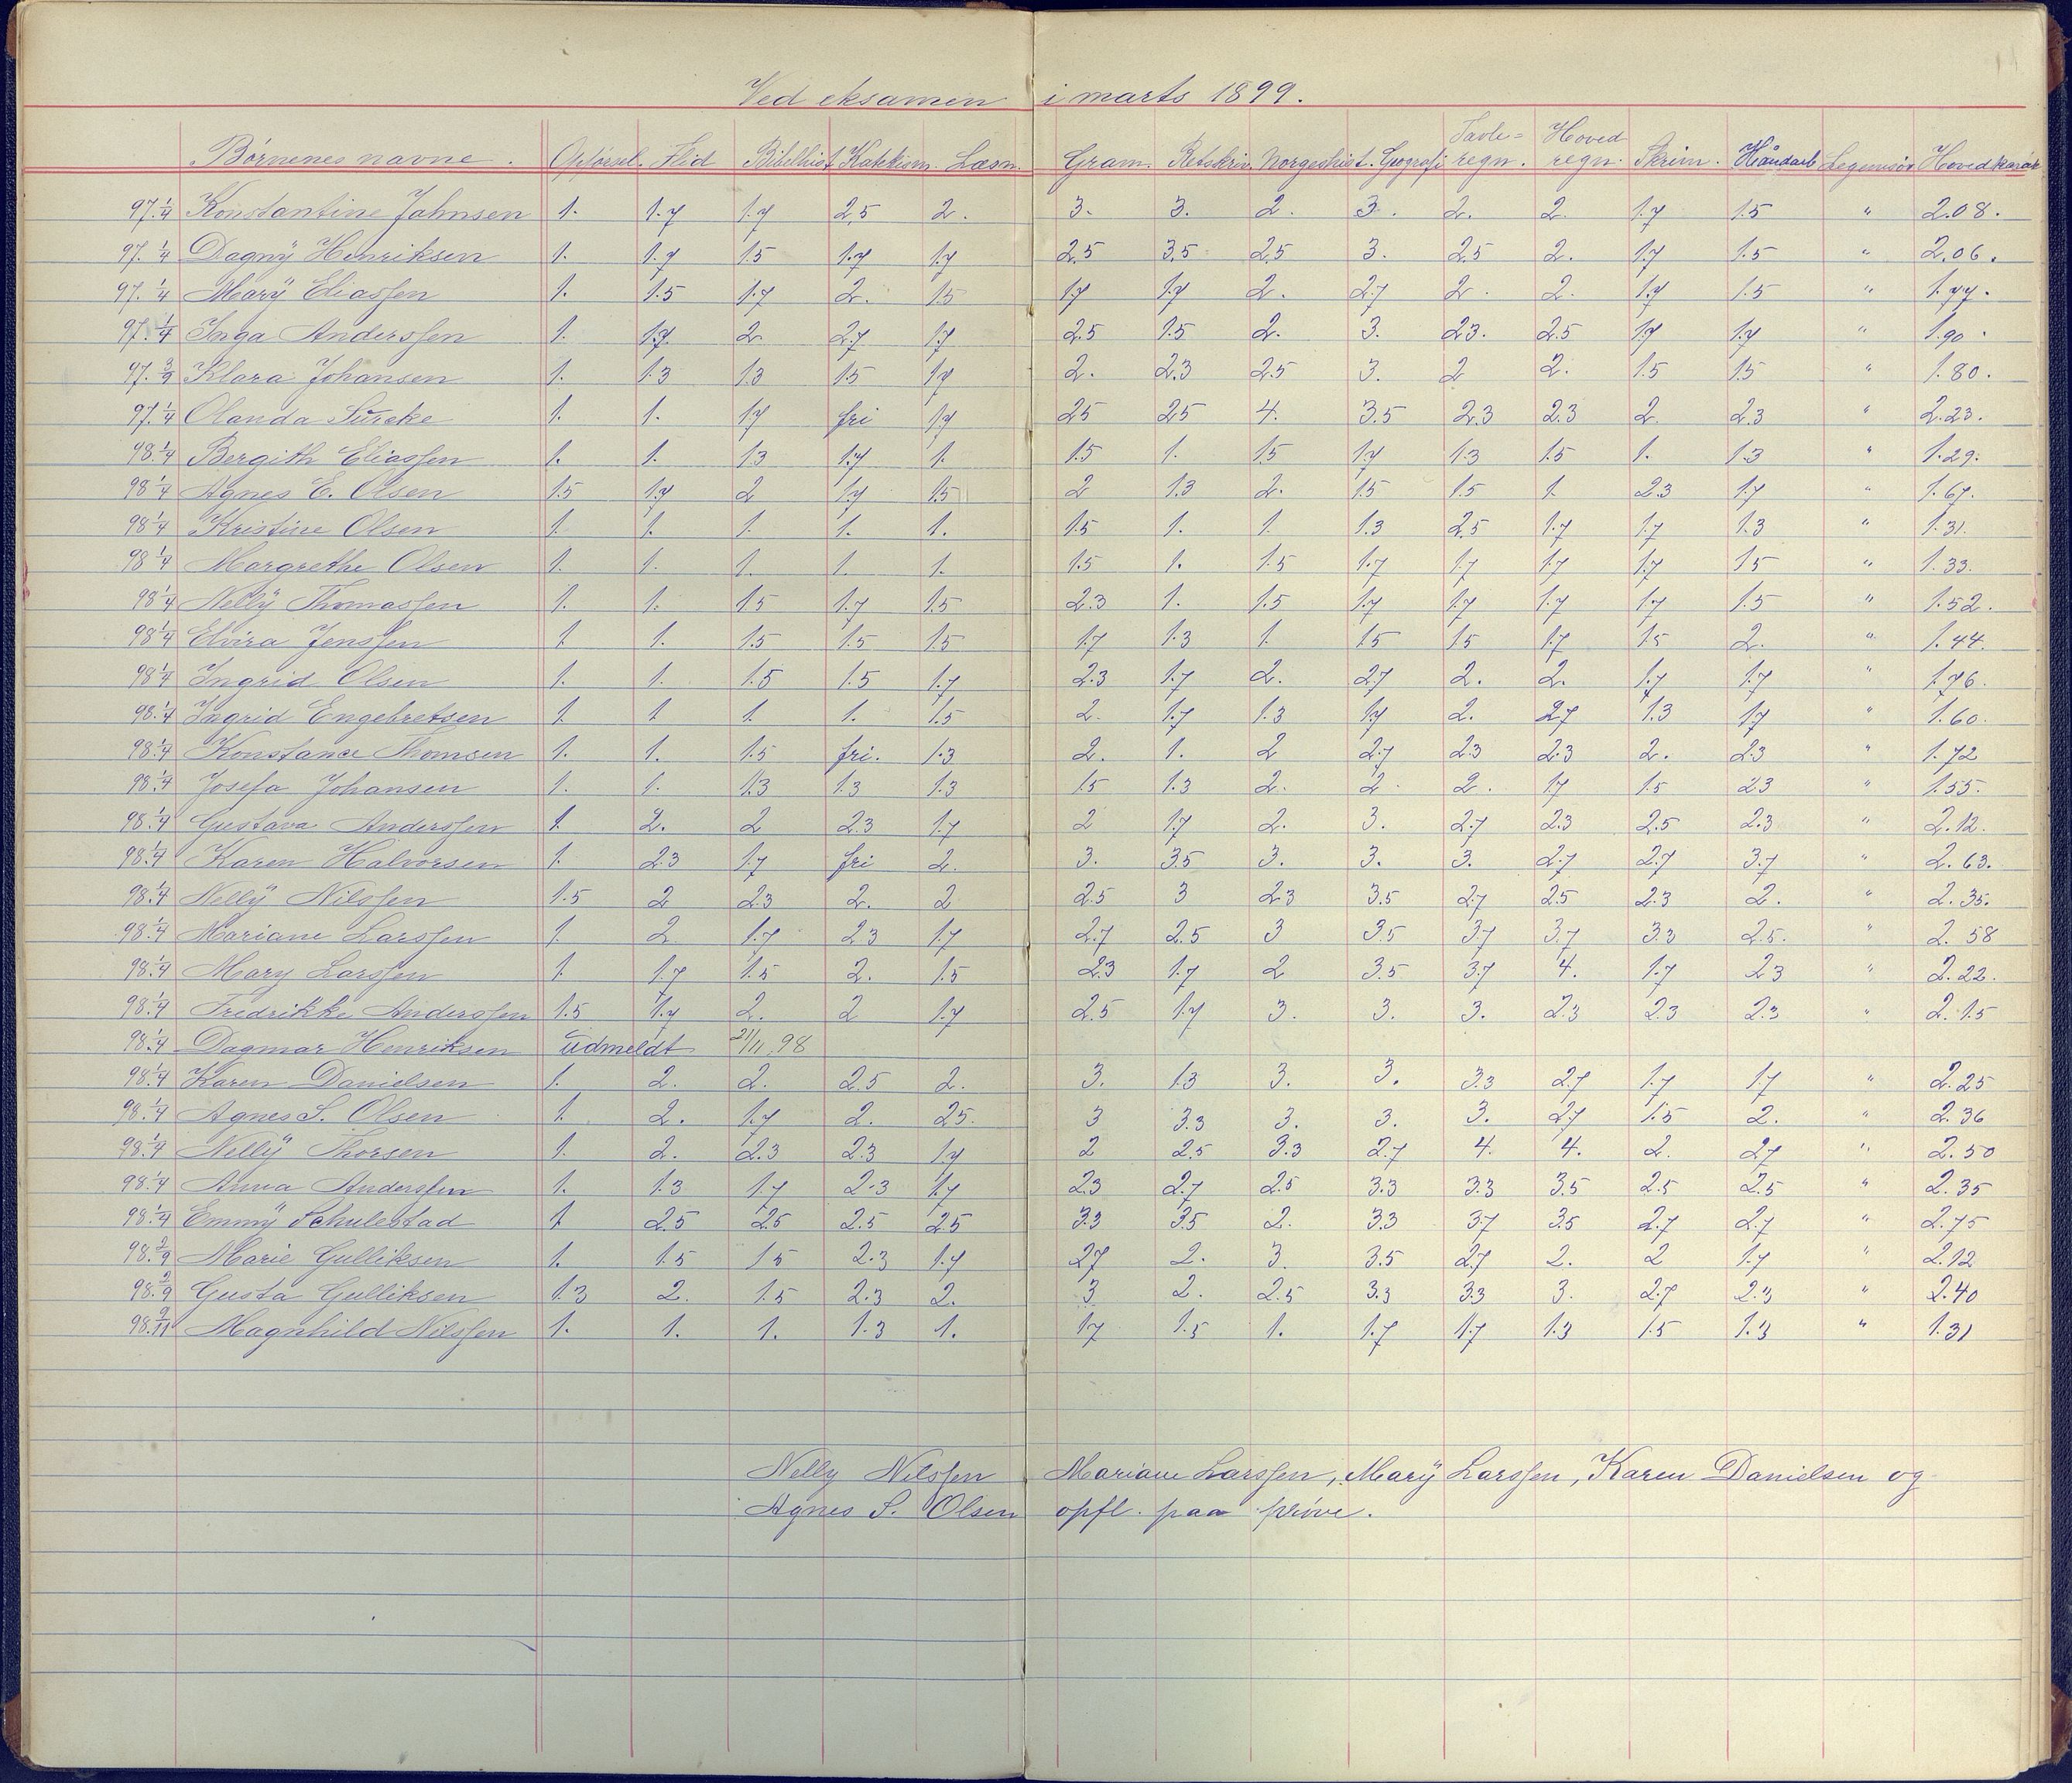 Ved eksamen i marts 1899.
Børnenes navne. Opførsel. Flid Bibelhist Katekism. Læsn. Gram. Retskriv. Norgeshist. Geografi Tavle= regn. Hoved regn. Skrivn. Håndarb Legemsøv Hovedkarak
97.1/4 Konstantine Johnsen 1. 1.7 1.7 2,5 2. 3. 3. 2. 3. 2. 2. 1.7 1.5 " 2.08.
97.1/4 Dagnÿ Henriksen 1. 1.7 1.5 1.7 1.7 2.5 3.5 2.5 3. 2.5 2. 1.7 1.5 " 2.06.
97.1/4 Marÿ Eliassen 1. 1.5 1.7 2. 1.5 1.7 1.7 2. 2.7 2. 2. 1.7 1.5 " 1.77.
97.1/4 Inga Anderssen 1. 1.7 2. 2.7 1.7 2.5 1.5 2. 3. 2.3. 2.5 1.7 1.7 " 1.90.
97.3/9 Klara Johansen 1. 1.3 1.3 1.5 1.7 2. 2.3 2.5 3. 2 2. 1.5 1.5 " 1.80.
97.1/4 Olanda Sürcke 1. 1. 1.7 fri 1.7 2.5 2.5 4. 3.5 2.3 2.3 2. 2.3 " 2.23.
98.1/4 Bergith Eliassen 1. 1. 1.3 1.7 1. 1.5 1. 1.5 1.7 1.3 1.5 1. 1.3 " 1.29.
98 1/4 Agnes E. Olsen 1.5 1.7 2 1.7 1.5 2 1.3 2. 1.5 1.5 1. 2.3 1.7 " 1.67.
98 1/4 Kristine Olsen 1. 1. 1. 1. 1. 1.5 1. 1. 1.3 2.5 1.7 1.7 1.3 " 1.31.
98 1/4 Margrethe Olsen 1. 1. 1. 1. 1. 1.5 1. 1.5 1.7 1.7 1.7 1.7 1.5 " 1.33.
98 1/4 Nellÿ Thomassen 1. 1. 1.5 1.7 1.5 2.3 1. 1.5 1.7 1.7 1.7 1.7 1.5 " 1.52.
98 1/4 Elvira Jenssen 1. 1. 1.5 1.5 1.5 1.7 1.3 1. 1.5 1.5 1.7 1.5 2. " 1.44.
98 1/4 Ingrid Olsen 1. 1. 1.5 1.5 1.7 2.3 1.7 2. 2.7 2. 2. 1.7 1.7 " 1.76.
98.1/4 Ingrid Engebretsen 1. 1. 1. 1. 1.5 2. 1.7 1.3 1.7 2. 2.7 1.3 1.7 " 1.60.
98.1/4 Konstance Thomsen 1. 1. 1.5 fri. 1.3 2. 1. 2 2.7 2.3 2.3 2. 2.3 " 1.72
98.1/4 Josefa Johansen 1. 1. 1.3 1.3 1.3 1.5 1.3 2. 2. 2. 1.7 1.5 2.3 " 1.55.
98.1/4 Gustava Anderssen 1. 2. 2 2.3 1.7 2 1.7 2. 3. 2.7 2.3 2.5 2.3 " 2.12.
98.1/4 Karen Halvorsen 1. 2.3 1.7 fri 2. 3. 3.5 3. 3. 3. 2.7 2.7 3.7 " 2.63.
98.1/4 Nellÿ Nilssen 1.5 2 2.3 2. 2 2.5 3 2.3 3.5 2.7 2.5 2.3 2. " 2.35.
98.1/4 Mariane Larssen 1. 2. 1.7 2.3 1.7 2.7 2.5 3 3.5 3.7 3.7 3.3 2.5. " 2.58
98.1/4 Mary Larssen 1. 1.7 1.5 2. 1.5 2.3 1.7 2 3.5 3.7 4. 1.7 2.3 " 2.22.
98.1/4 Fredrikke Anderssen 1.5 1.7 2. 2 1.7 2.5 1.7 3. 3. 3. 2.3 2.3 2.3 " 2.15
98.1/4 Dagmar Henriksen üdmeldt 21/11.98
98.1/4 Karen Danielsen 1. 2. 2. 2.5 2. 3. 1.3 3. 3. 3.3 2.7 1.7 1.7 " 2.25
98.1/4 Agnes S. Olsen 1. 2. 1.7 2. 2.5. 3 3.3 3. 3. 3. 2.7 1.5 2. " 2.36
98.1/4 Nellÿ Thorsen 1. 2. 2.3 2.3 1.7 2 2.5 3.3 2.7 4. 4. 2. 2.7 " 2.50
98.1/4 Anna Anderssen 1. 1.3 1.7 2.3 1.7 2.3 2.7 2.5 3.3 3.3 3.5 2.5 2.5 " 2.35
98.1/4 Emmÿ Schulestad 1 2.5 2.5 2.5 2.5 3.3 3.5 2. 3.3 3.7 3.5 2.7 2.7 " 2.75
98.2/9 Marie Gulliksen 1. 1.5 1.5 2.3 1.7 2.7 2. 3. 3.5 2.7 2. 2 1.7 " 2.12
98.2/9 Gusta Gulliksen 1.3 2. 1.5 2.3 2. 3 2. 2.5 3.3 3.3 3. 2.7 2.3 " 2.40
98.2/11 Magnhild Nilssen 1. 1. 1. 1.3 1. 1.7 1.5 1. 1.7 1.7 1.3 1.5 1.3 " 1.31
Nelly Nilssen Mariane Larssen, Marÿ Larssen, Karen Danielsen og
Agnes S. Olsen opfl. paa prøve.